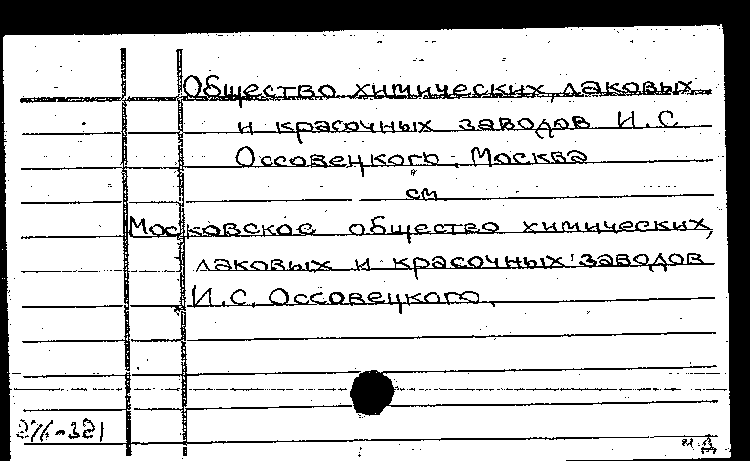 Общество химических, лаковых
и красочных заводов И.С
Оссовецкого. Москва
см
Московское общество химических,
лаковых и красочных заводов
И.С. Оссовецкого.
276-321
ч.д